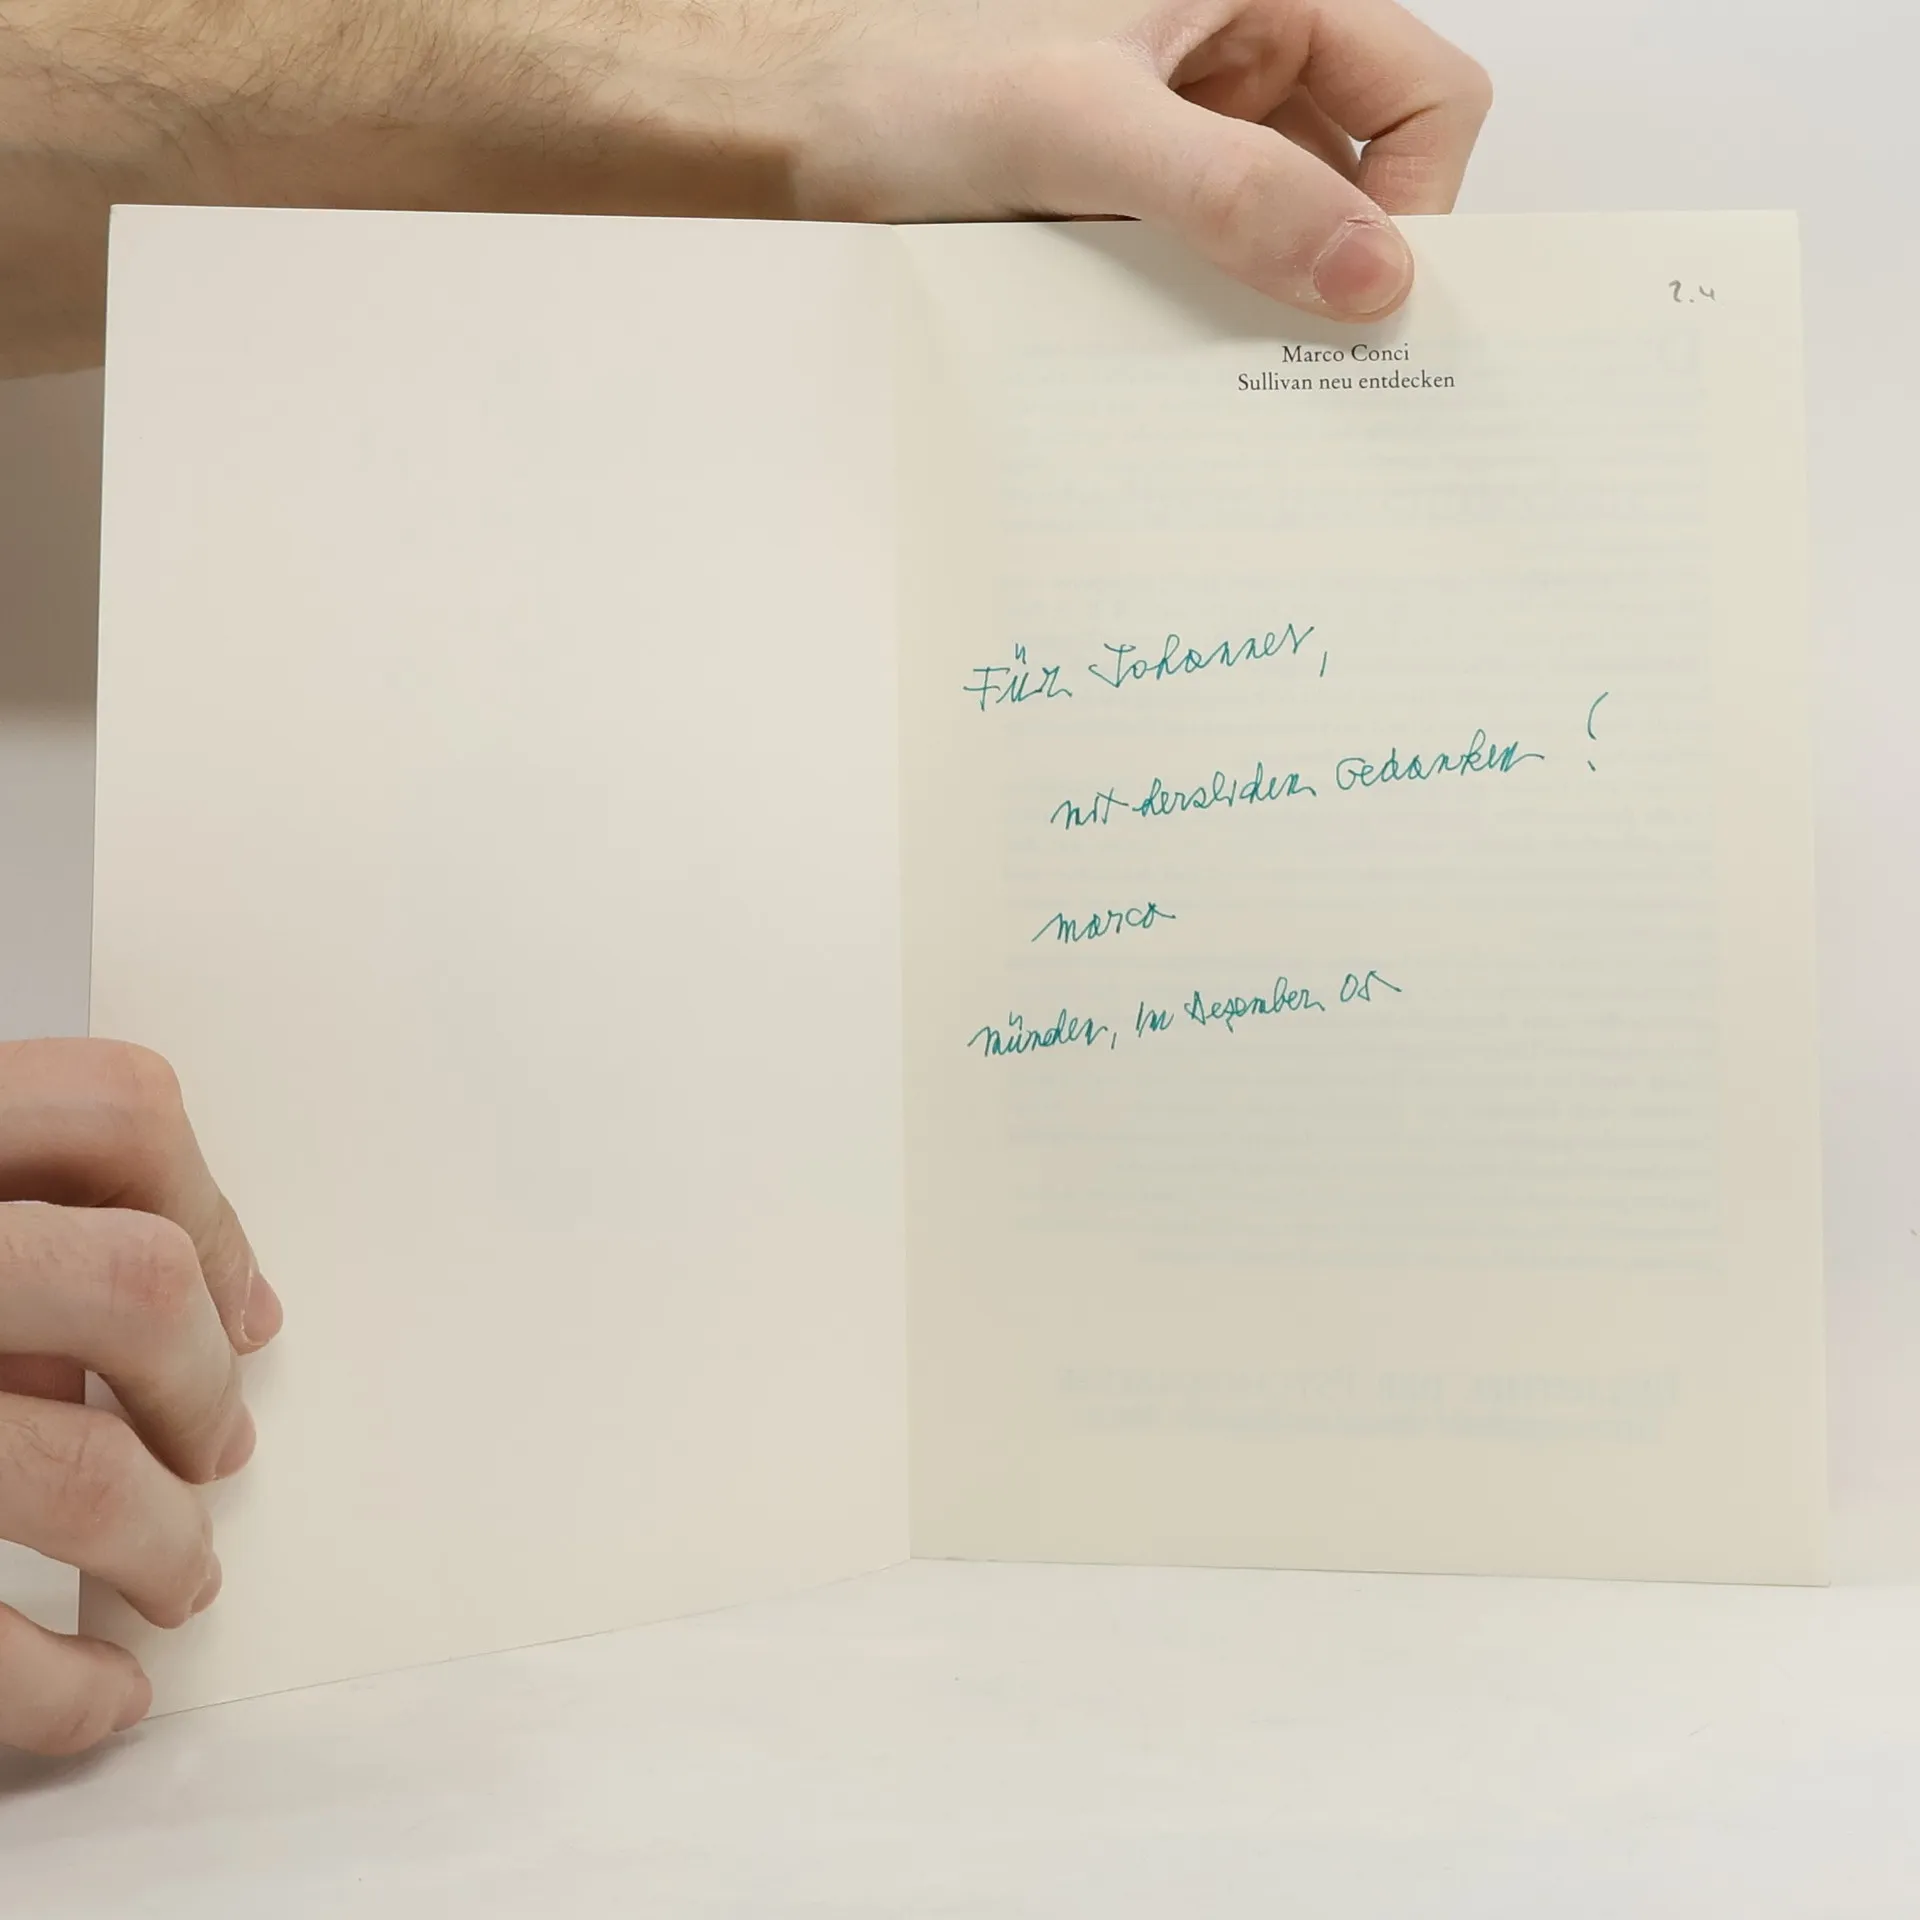 2.4
Marco Conci
Sullivan neu entdecken
Für Johannes,
mit herzlichen Gedanken !
Marco
München, im Dezember 05